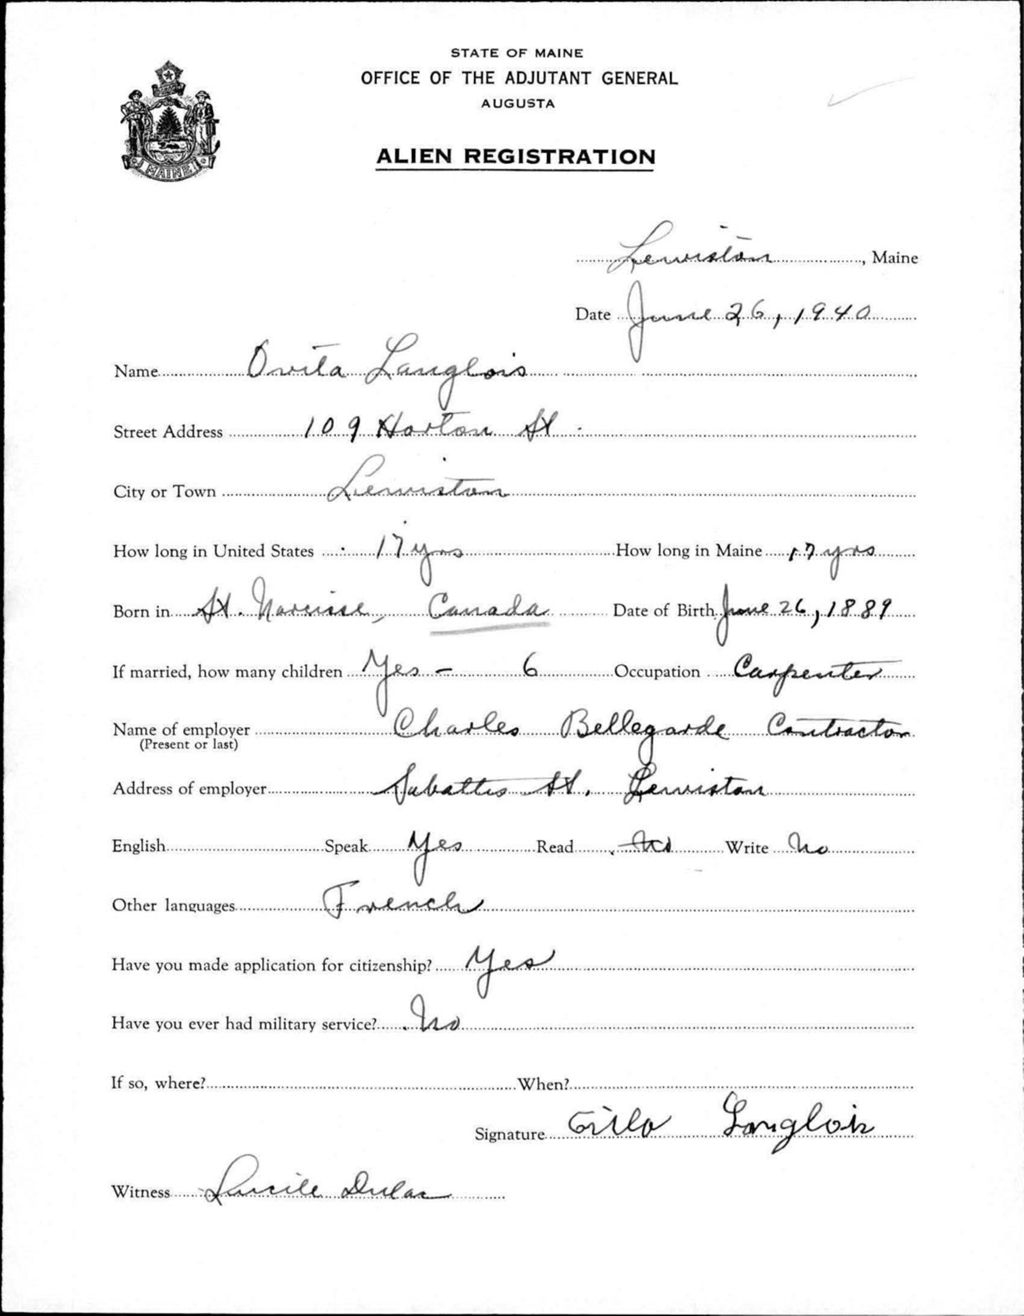 STATE OF MAINE
OFFICE OF THE ADJUTANT GENERAL
AUGUSTA
ALIEN REGISTRATION
MAINE
Lewiston, Maine
Date June 26, 1940
Name Ovila Langlois
Street Address 109 Horton St.
City or Town Lewiston
How long in United States 17 yrs How long in Maine 17 yrs
Born in St. Narcisse, Canada Date of Birth June 26, 1889
If married, how many children Yes - 6 Occupation Carpenter
Name of employer Charles Bellegarde Contractor
(Present or last)
Address of employer Sabattus St. Lewiston
English Speak Yes Read No Write No
Other languages French
Have you made application for citizenship? Yes
Have you ever had military service? No
If so, where? When?
Signature Langlois
Witness Lucile Dulac